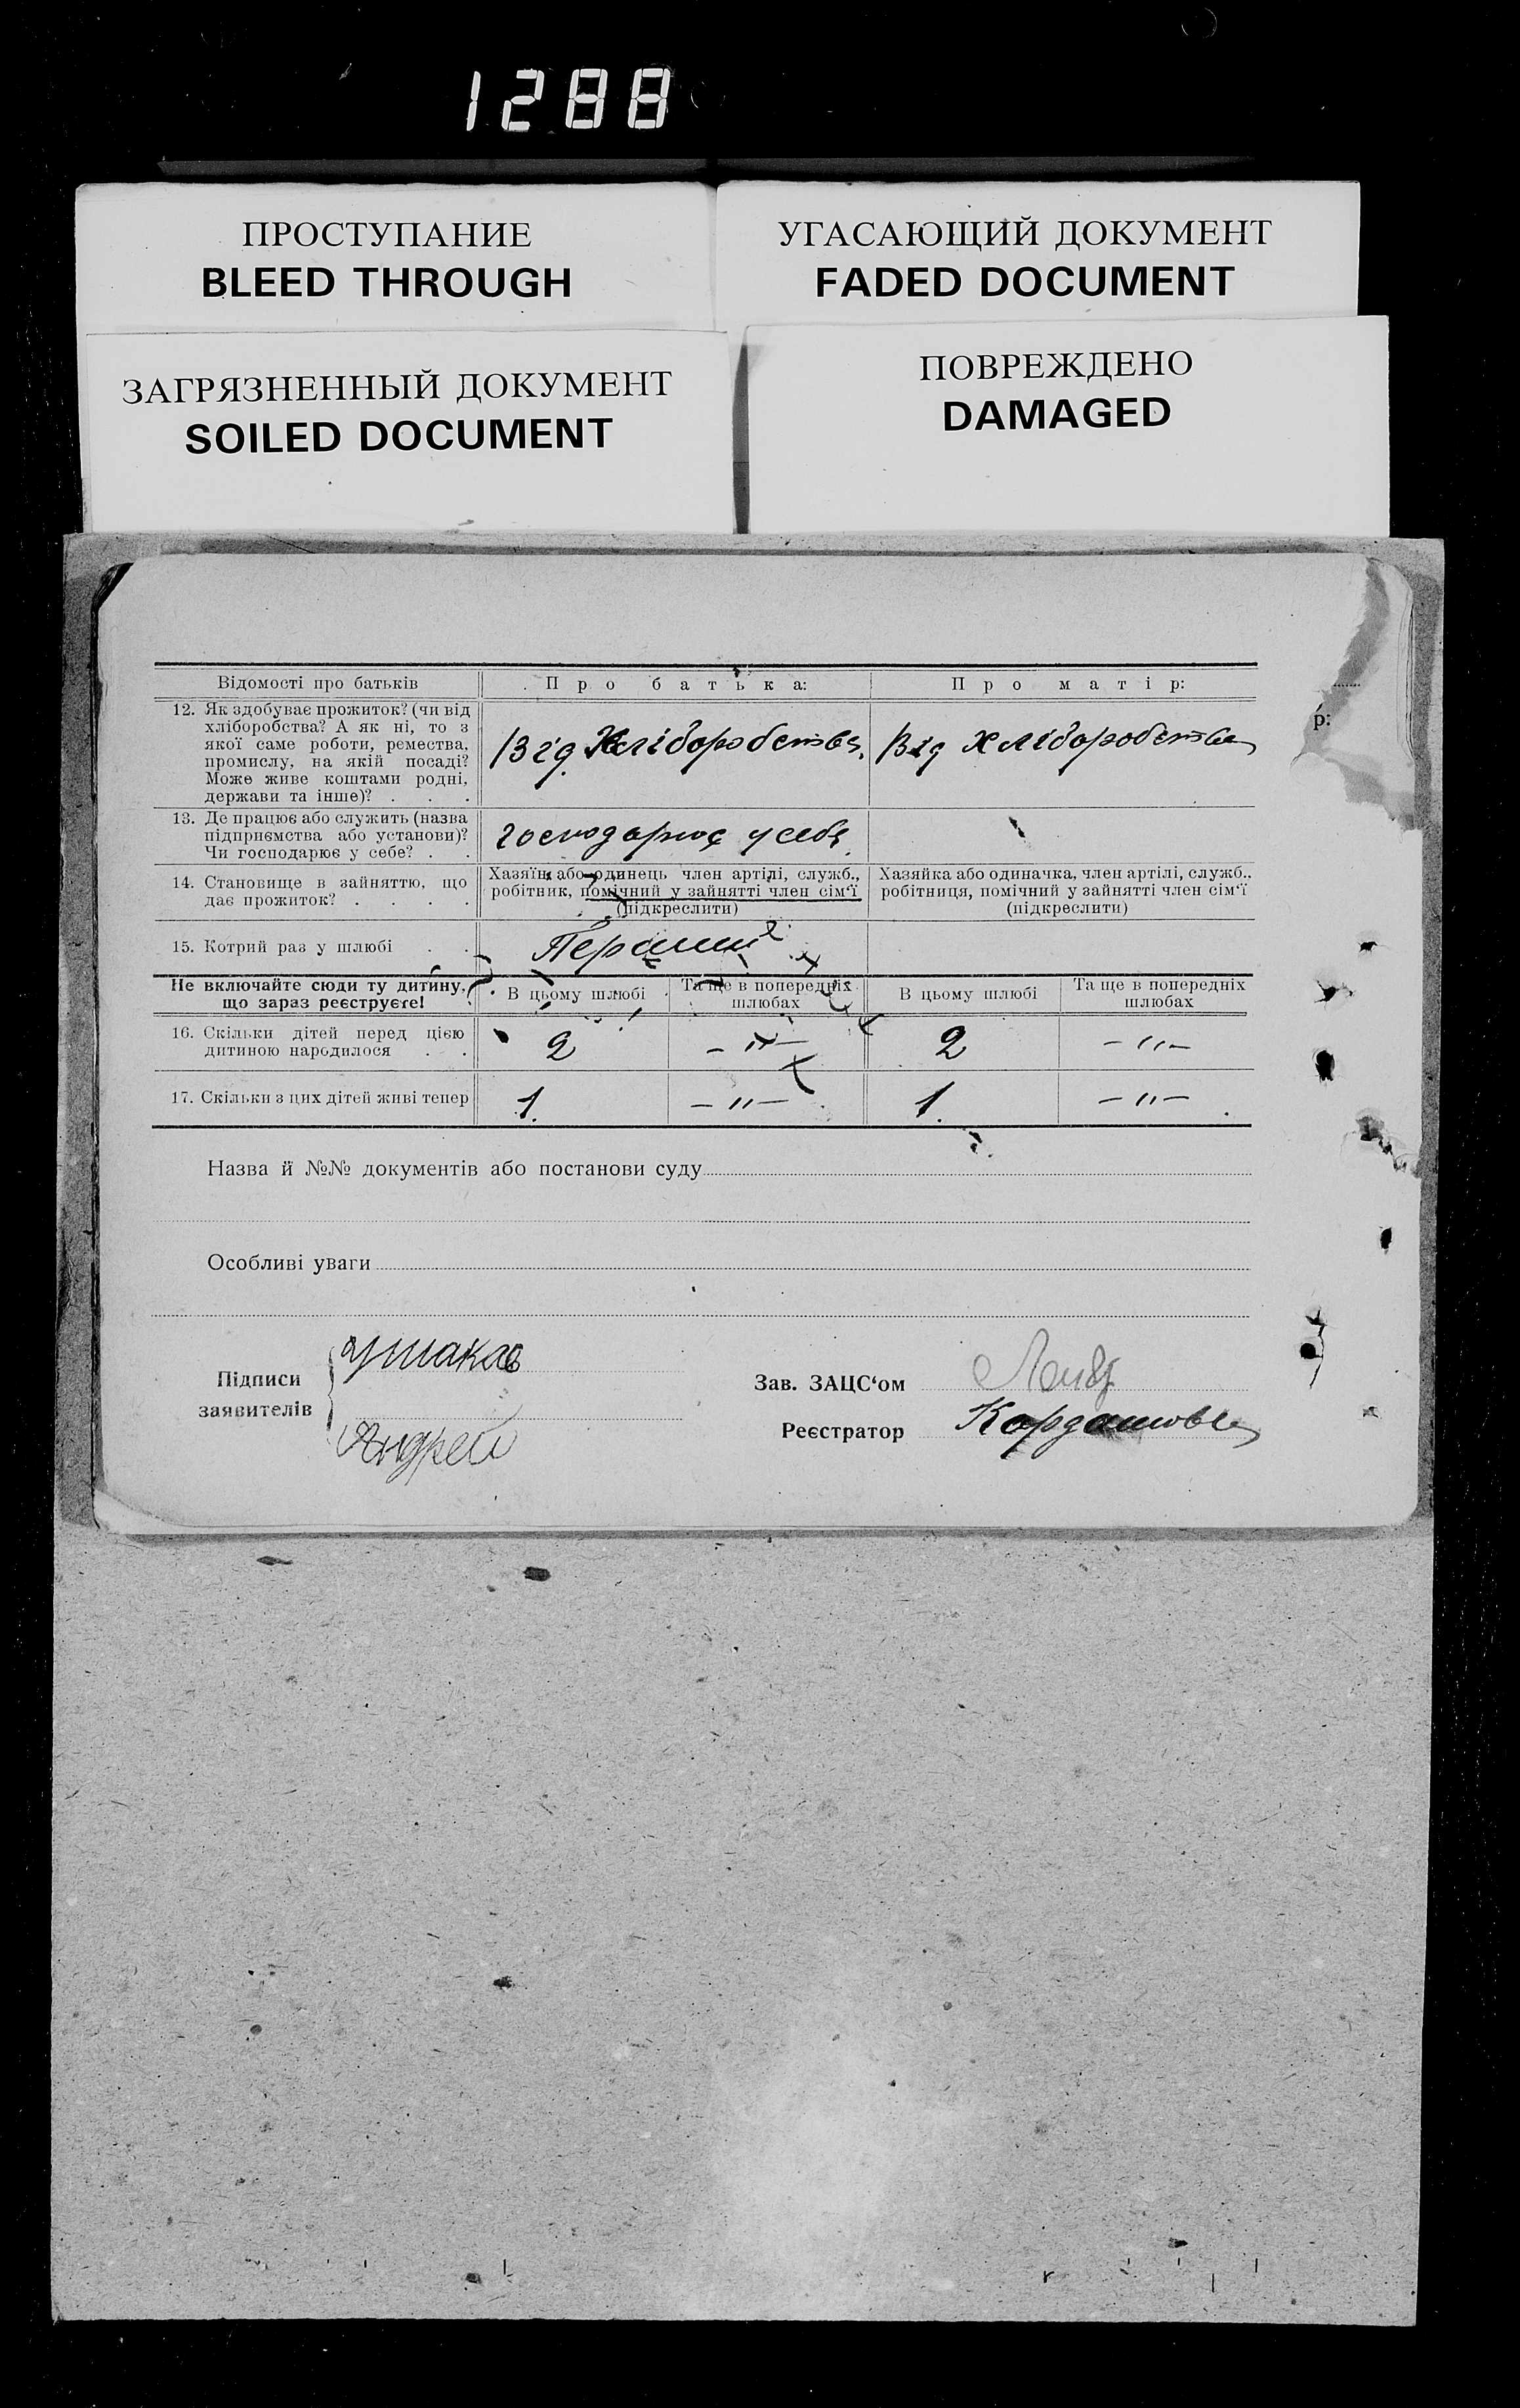 1288
ПРОСТУПАНИЕ
BLEED THROUGH
УГАСАЮЩИЙ ДОКУМЕНТ
FADED DOCUMENT
ЗАГРЯЗНЕННЫЙ ДОКУМЕНТ
SOILED DOCUMENT
ПОВРЕЖДЕНО
DAMAGED
Відомості про батьків
Про батька:
Про матір:
р:
12. Як здобуває прожиток? (чи від
хліборобства? А як ні, то з
якої саме роботи, ремества,
промислу, на якій посаді?
Може живе коштами родні,
держави та інше)? . . .
Від Хліборобства.
Від Хліборобства
13. Де працює або служить (назва
підприємства або установи)?
Чи господарює у себе? . .
господарює у себе
14. Становище в зайняттю, що
дає прожиток? . . . .
Хазяїн або одинець член артілі, служб.,
робітник, помічний у зайнятті член сім‘ї
(підкреслити)
Хазяйка або одиначка, член артілі, служб.,
робітниця, помічний у зайнятті член сім‘ї
(підкреслити)
15. Котрий раз у шлюбі . .
Перший
Не включайте сюди ту дитину,
що зараз реєструєте!
В цьому шлюбі
Та ще в попередніх
шлюбах
В цьому шлюбі
Та ще в попередніх
шлюбах
16. Скільки дітей перед цією
дитиною народилося . .
2
— „ —
2
— „ —
17. Скільки з цих дітей живі тепер
1.
— „ —
1.
— „ —
Назва й №№ документів або постанови суду
Особливі уваги
Підписи
заявителів
Ушаков
Андрей
Зав. ЗАЦС‘ом
Реєстратор